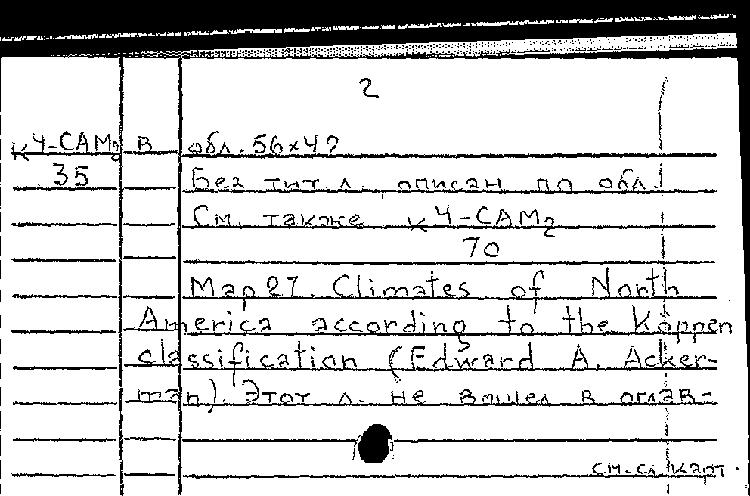 2
к Ч-САМ2 В обл. 56×42
35 Без тит л. описан по обл.
См. также к Ч-САМ2
70
Map 27. Climates of North
America according to the Köppen
classification (Edward A. Acker-
man). Этот л. не вошел в оглав-
см. сл. карт.